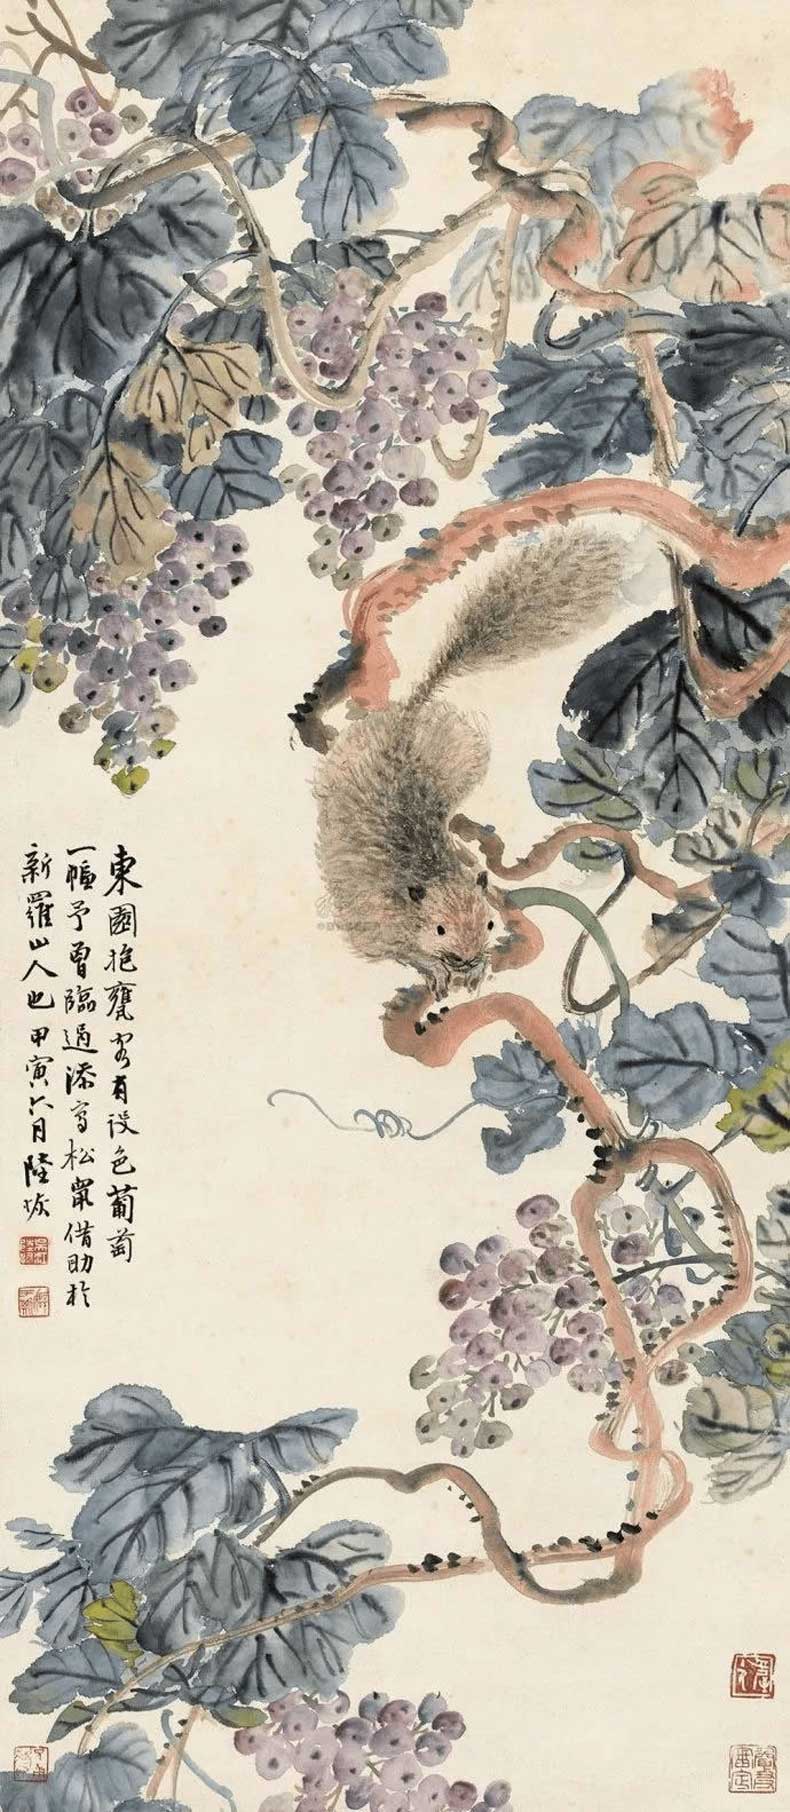 東園抱甕客有設色葡萄
一幅予曾臨過添寫松鼠借助於
新羅山人也甲寅六月陸恢